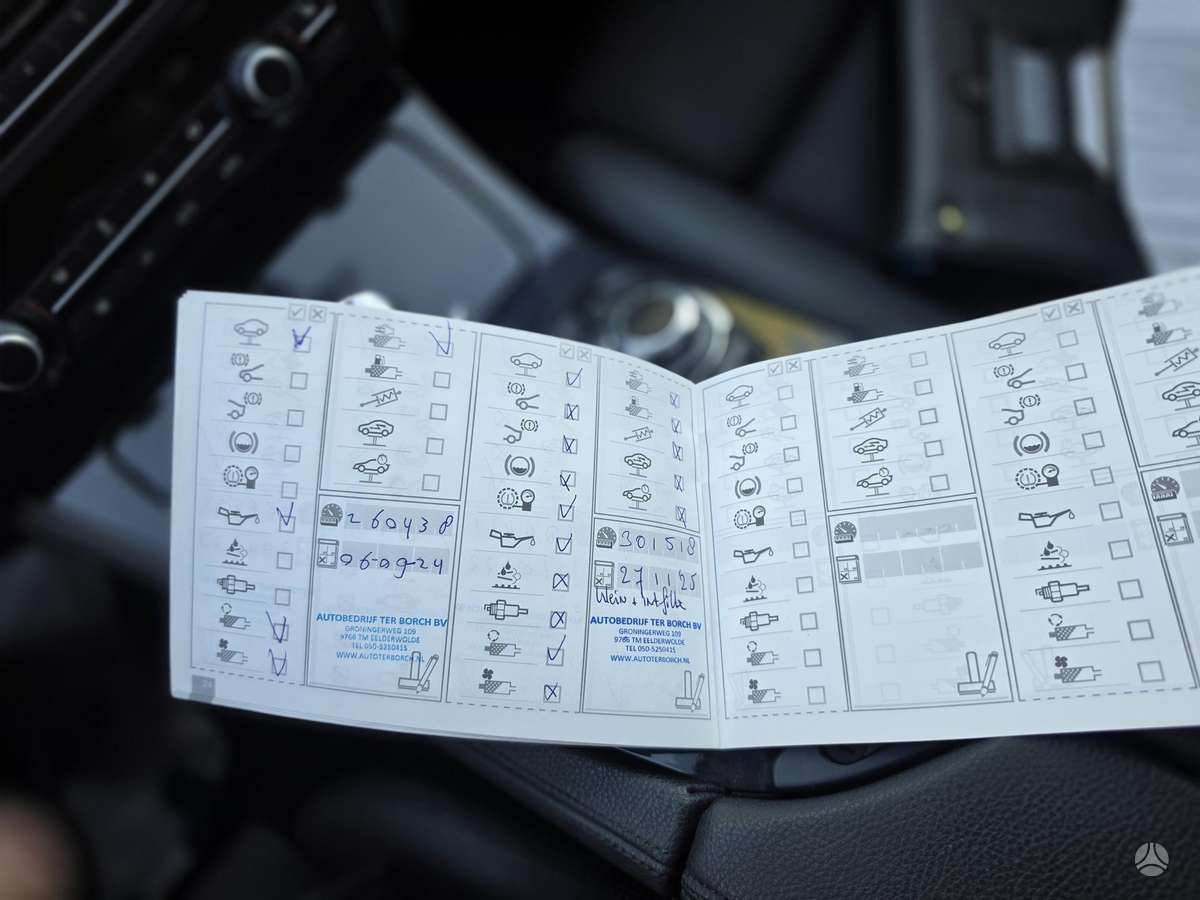 260438
060924
AUTOBEDRIJF TER BORCH BV
GRONINGERWEG 109
9766 TM EELDERWOLDE
TEL 050-5250415
WWW.AUTOTERBORCH.NL
301518
271125
AUTOBEDRIJF TER BORCH BV
GRONINGERWEG 109
9766 TM EELDERWOLDE
TEL 050-5250415
WWW.AUTOTERBORCH.NL